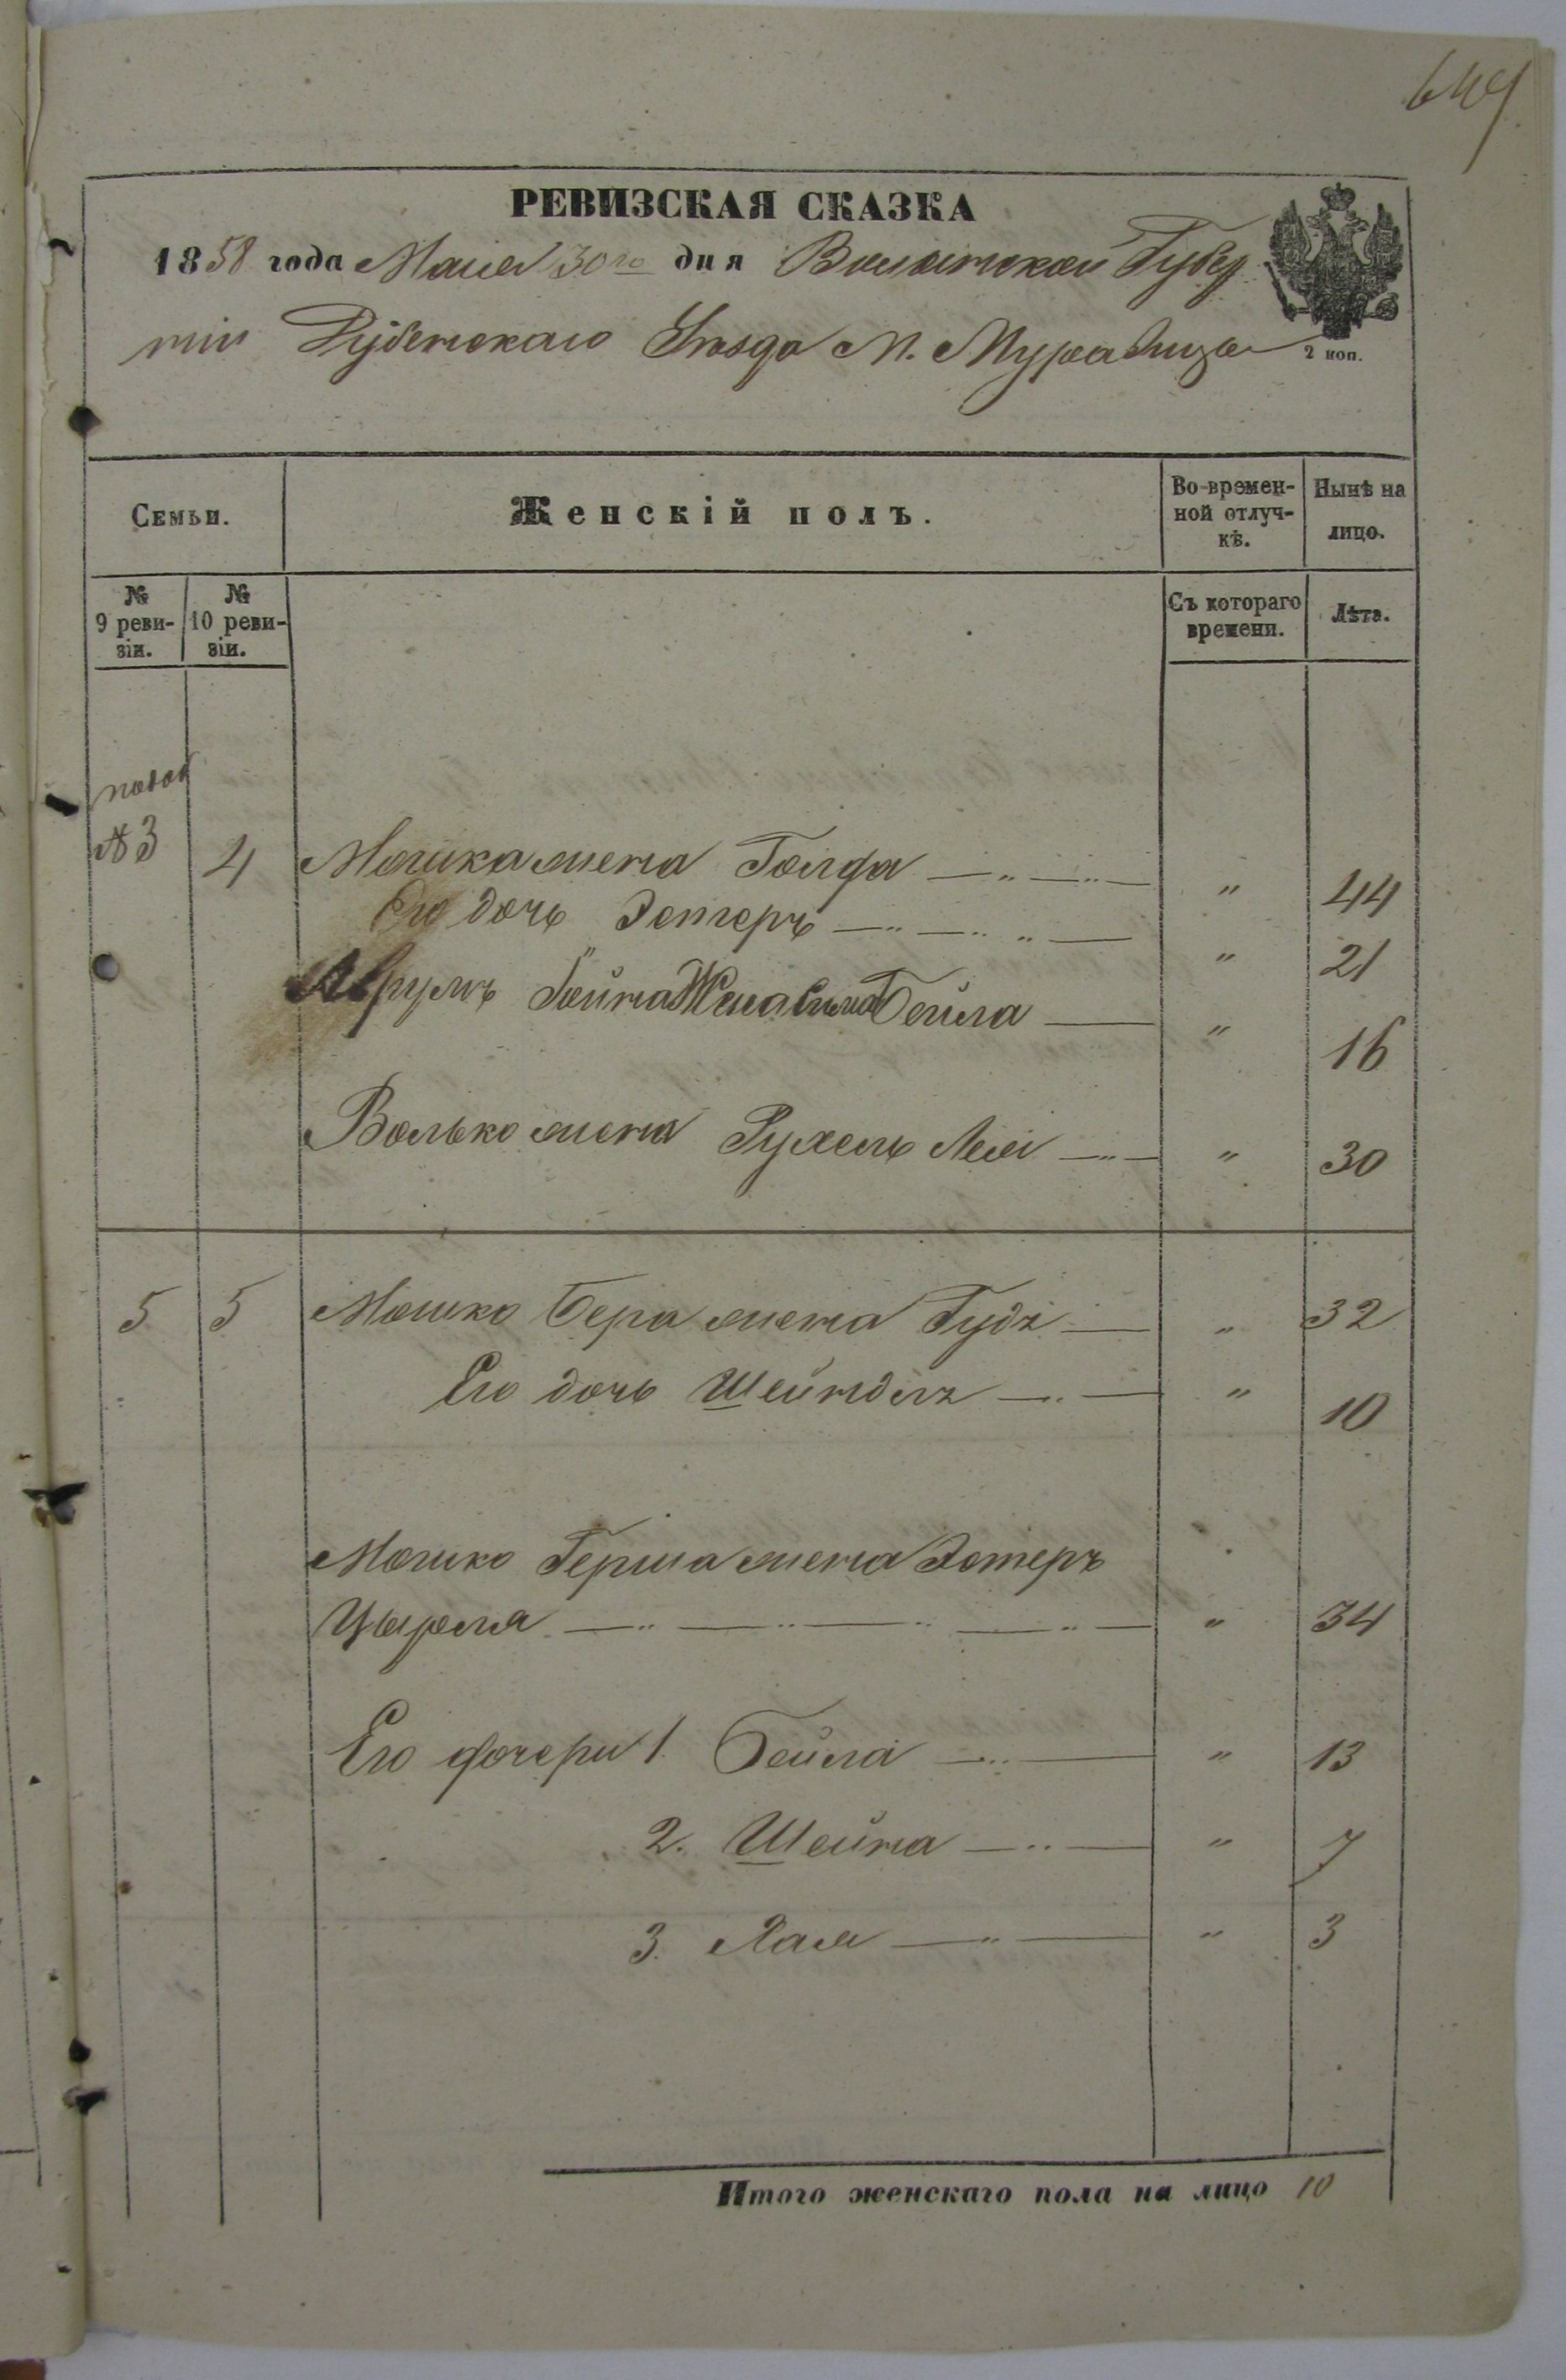 649
РЕВИЗСКАЯ СКАЗКА
1858 года Маія 30го дня Волынской Губер
ніи Дубенскаго Уѣзда М. Муравица
2 коп.
Семьи.
Женскій полъ.
Во времен-
ной отлуч-
кѣ.
Нынѣ на
лицо.
№
9 реви-
зіи.
№
10 реви-
зіи.
Съ котораго
времени.
Лѣта.
№ 3 4 Мошка жена Голда " 44
Его дочь Эстеръ " 21
Жена Бейла " 16
Волько жена Рухель Лея " 30
5 5 Мошко Бера жена Гудя " 32
Его дочь Шейндля " 10
Мошко Герша жена Эстеръ
Цырля " 34
Его дочери 1. Бейла " 13
2. Шейна " 7
3. Хая " 3
Итого женскаго пола на лицо 10